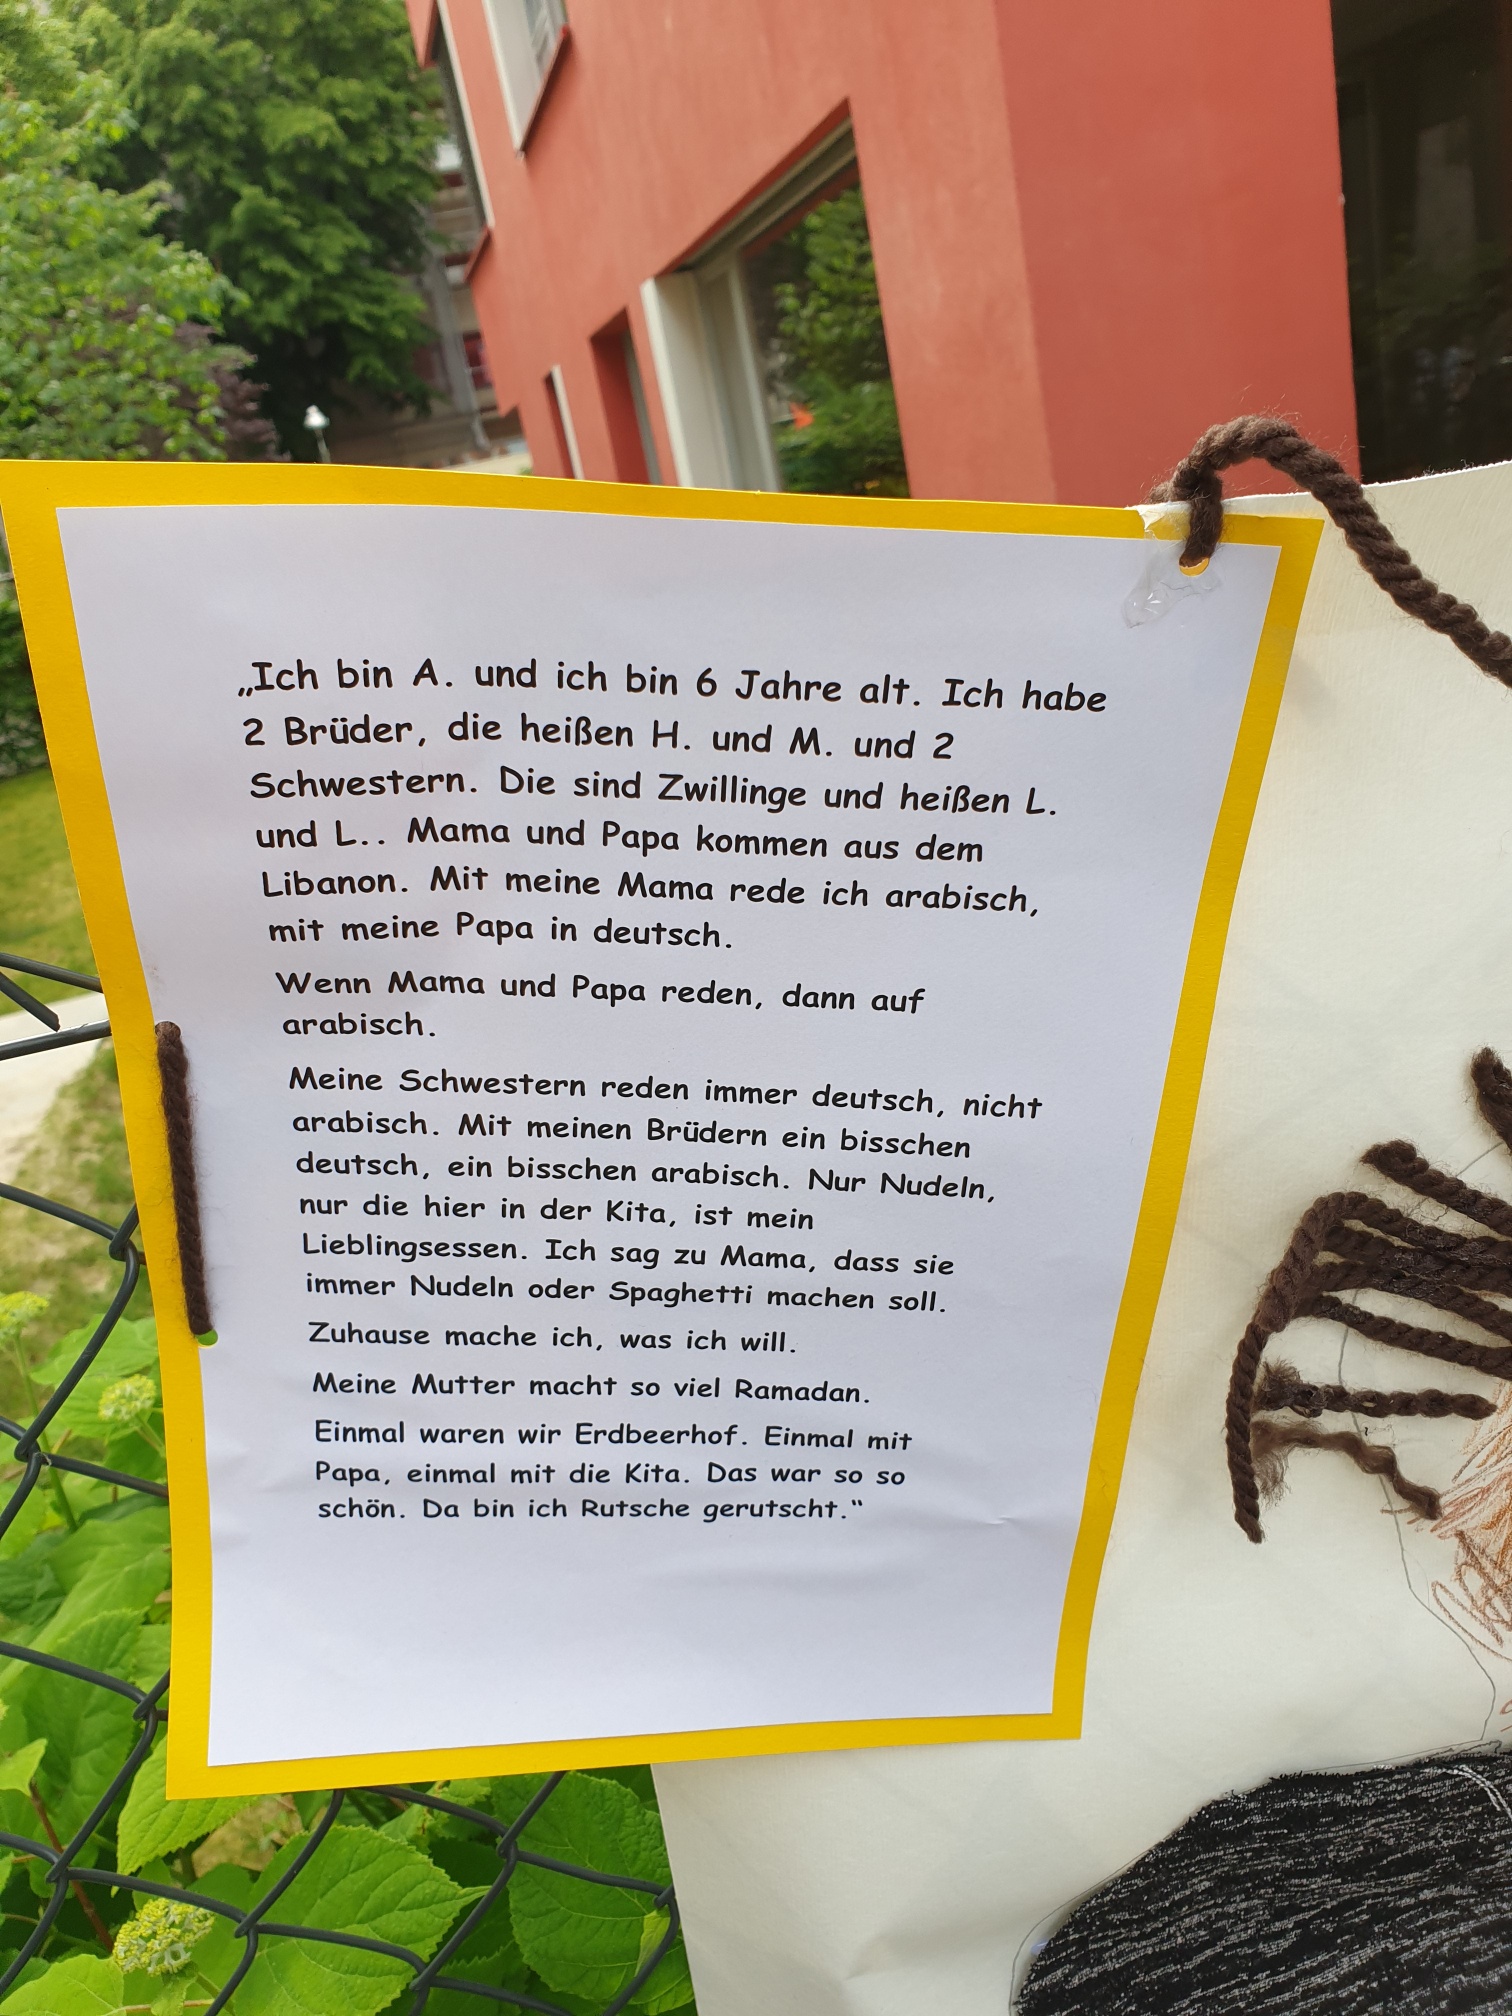 „Ich bin A. und ich bin 6 Jahre alt. Ich habe
2 Brüder, die heißen H. und M. und 2
Schwestern. Die sind Zwillinge und heißen L.
und L.. Mama und Papa kommen aus dem
Libanon. Mit meine Mama rede ich arabisch,
mit meine Papa in deutsch.
Wenn Mama und Papa reden, dann auf
arabisch.
Meine Schwestern reden immer deutsch, nicht
arabisch. Mit meinen Brüdern ein bisschen
deutsch, ein bisschen arabisch. Nur Nudeln,
nur die hier in der Kita, ist mein
Lieblingsessen. Ich sag zu Mama, dass sie
immer Nudeln oder Spaghetti machen soll.
Zuhause mache ich, was ich will.
Meine Mutter macht so viel Ramadan.
Einmal waren wir Erdbeerhof. Einmal mit
Papa, einmal mit die Kita. Das war so so
schön. Da bin ich Rutsche gerutscht.“